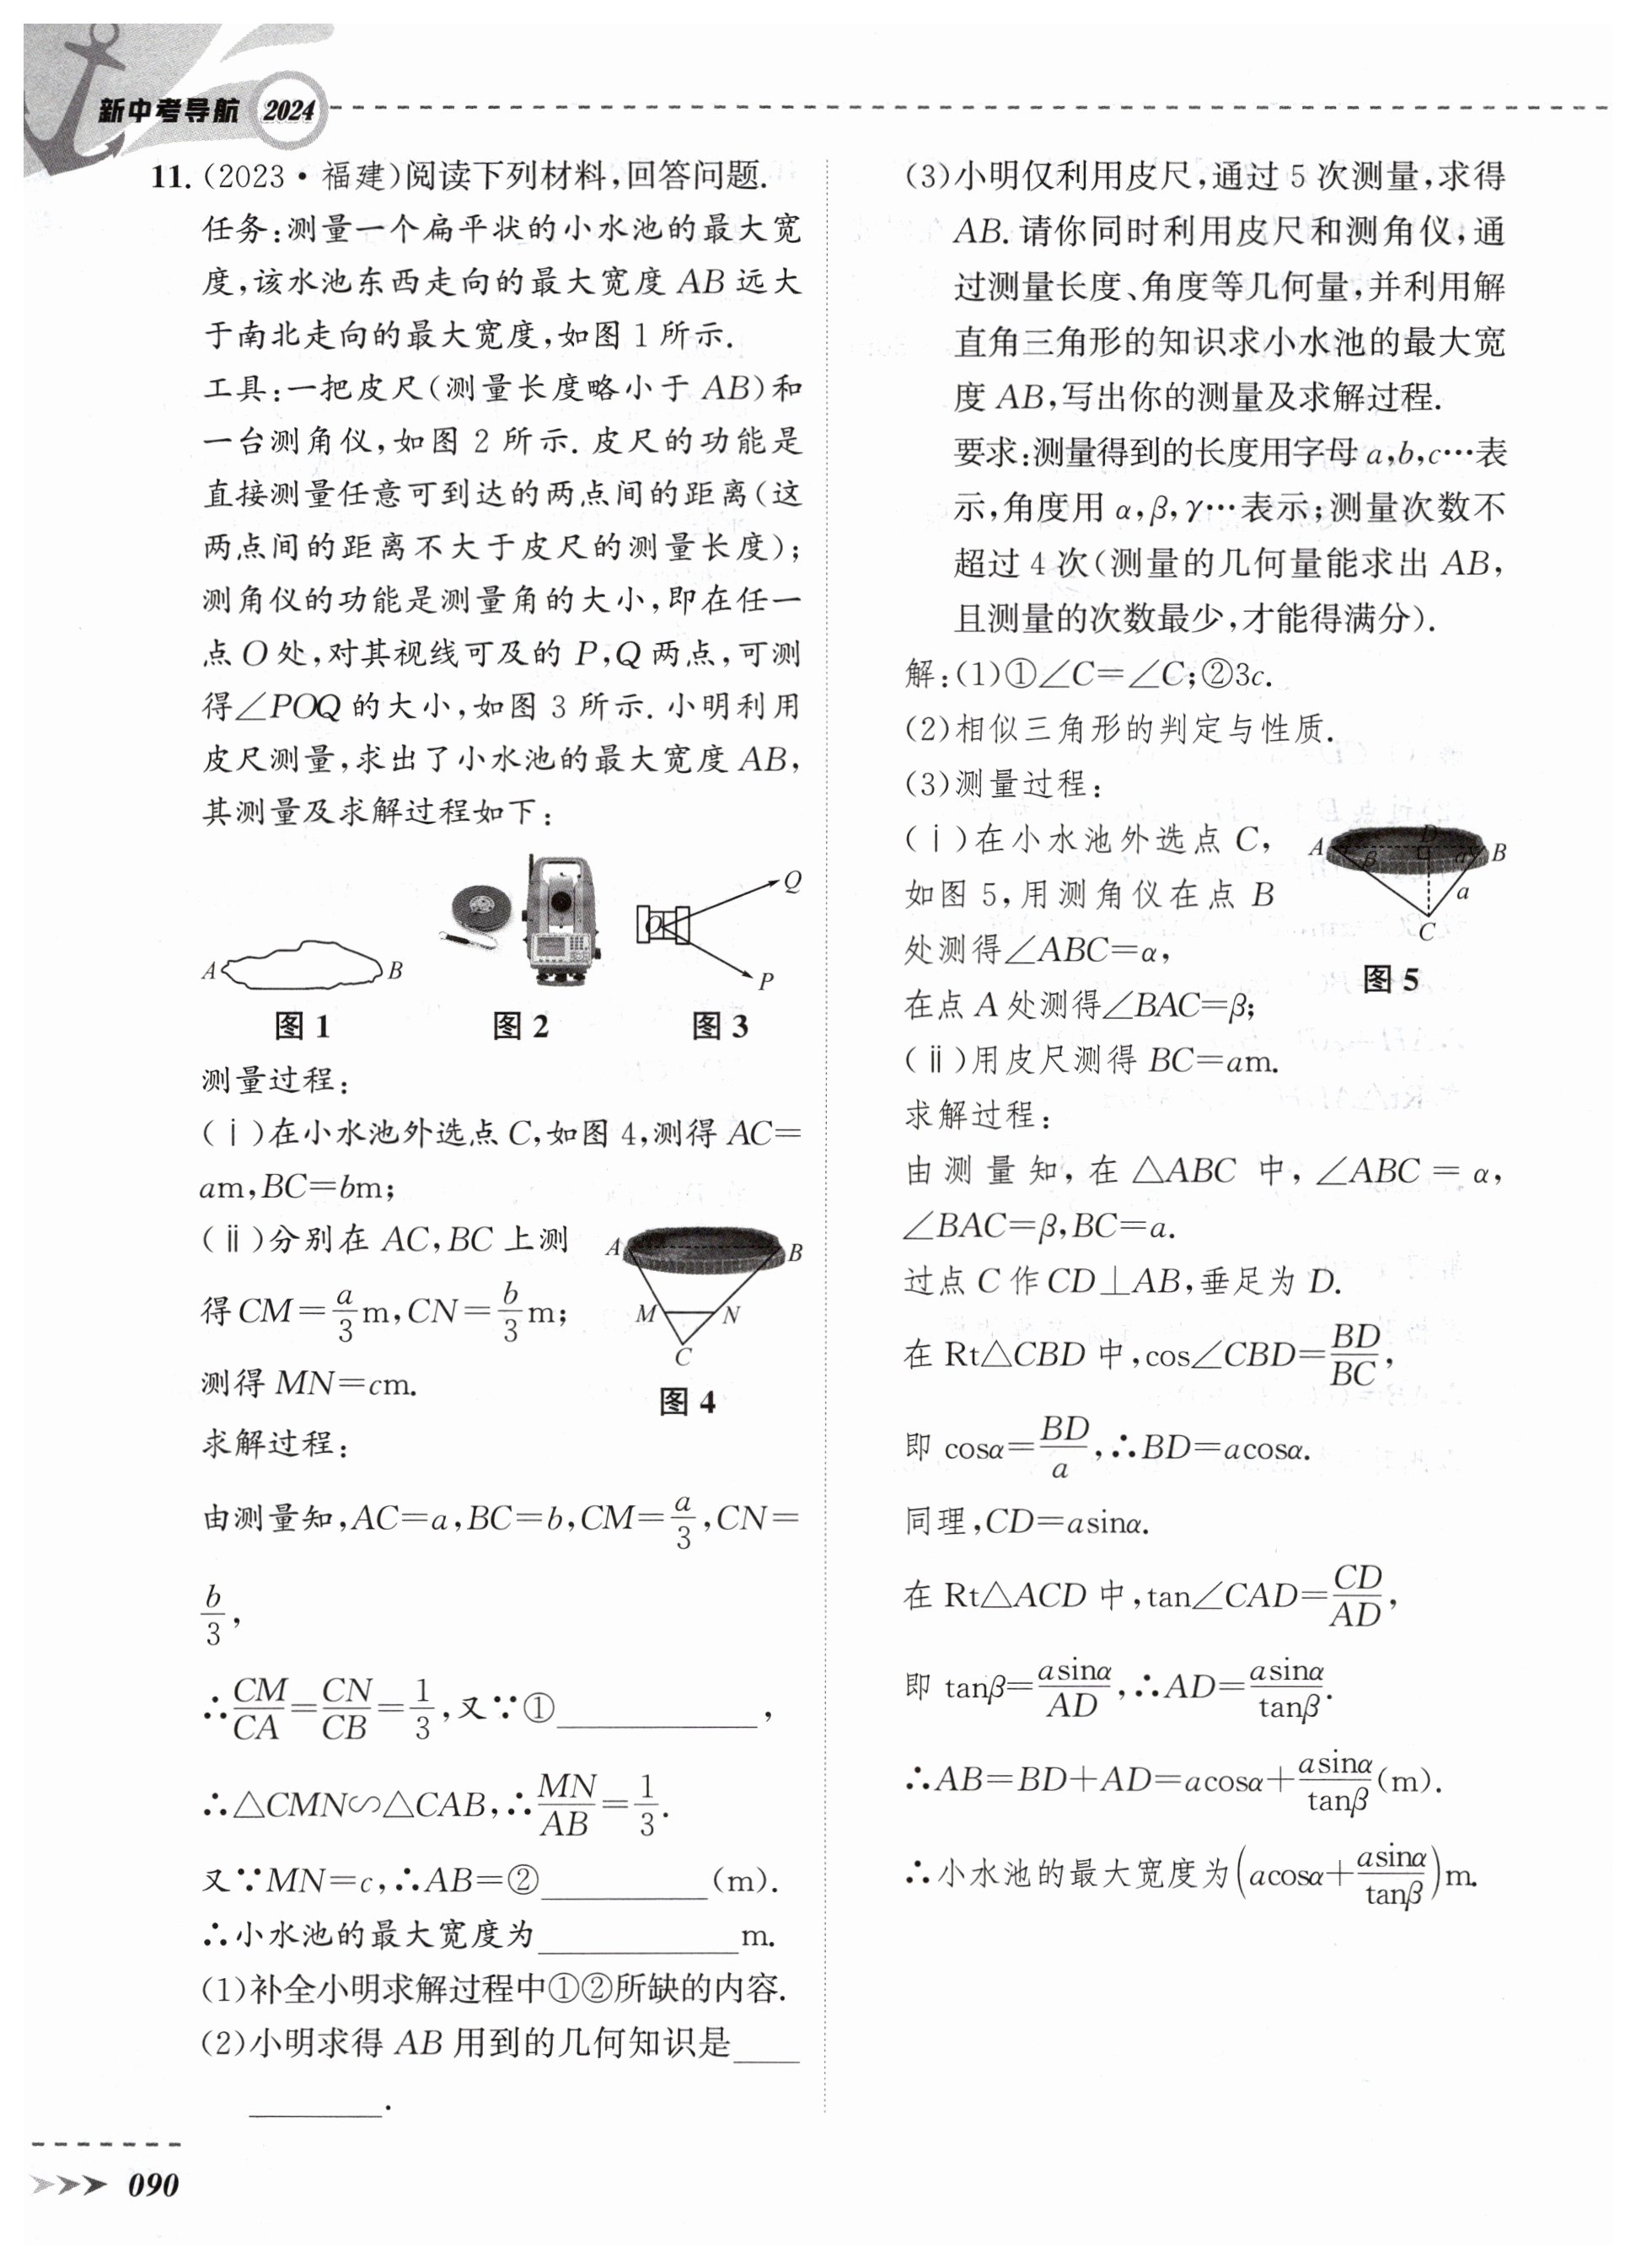 新中考导航 2024
11.(2023·福建)阅读下列材料,回答问题.
任务:测量一个扁平状的小水池的最大宽
度,该水池东西走向的最大宽度 AB 远大
于南北走向的最大宽度,如图 1 所示.
工具:一把皮尺(测量长度略小于 AB)和
一台测角仪,如图 2 所示. 皮尺的功能是
直接测量任意可到达的两点间的距离(这
两点间的距离不大于皮尺的测量长度);
测角仪的功能是测量角的大小,即在任一
点 O 处,对其视线可及的 P,Q 两点,可测
得∠POQ 的大小,如图 3 所示. 小明利用
皮尺测量,求出了小水池的最大宽度 AB,
其测量及求解过程如下:
A B
Q
O
P
图 1 图 2 图 3
测量过程:
(ⅰ)在小水池外选点 C,如图 4,测得 AC=
am,BC=bm;
(ⅱ)分别在 AC,BC 上测
得 CM=a/3 m,CN=b/3 m;
测得 MN=cm.
A B
M N
C
图 4
求解过程:
由测量知,AC=a,BC=b,CM=a/3,CN=
b/3,
∴CM/CA=CN/CB=1/3,又∵①____________,
∴△CMN∽△CAB,∴MN/AB=1/3.
又∵MN=c,∴AB=②__________(m).
∴小水池的最大宽度为____________m.
(1)补全小明求解过程中①②所缺的内容.
(2)小明求得 AB 用到的几何知识是____
________.
(3)小明仅利用皮尺,通过 5 次测量,求得
AB. 请你同时利用皮尺和测角仪,通
过测量长度、角度等几何量,并利用解
直角三角形的知识求小水池的最大宽
度 AB,写出你的测量及求解过程.
要求:测量得到的长度用字母 a,b,c…表
示,角度用 α,β,γ…表示;测量次数不
超过 4 次(测量的几何量能求出 AB,
且测量的次数最少,才能得满分).
解:(1)①∠C=∠C;②3c.
(2)相似三角形的判定与性质.
(3)测量过程:
(ⅰ)在小水池外选点 C,
如图 5,用测角仪在点 B
处测得∠ABC=α,
在点 A 处测得∠BAC=β;
A D B
β α
a
C
图 5
(ⅱ)用皮尺测得 BC=am.
求解过程:
由测量知,在△ABC 中,∠ABC=α,
∠BAC=β,BC=a.
过点 C 作 CD⊥AB,垂足为 D.
在 Rt△CBD 中,cos∠CBD=BD/BC,
即 cosα=BD/a,∴BD=acosα.
同理,CD=asinα.
在 Rt△ACD 中,tan∠CAD=CD/AD,
即 tanβ=asinα/AD,∴AD=asinα/tanβ.
∴AB=BD+AD=acosα+asinα/tanβ(m).
∴小水池的最大宽度为(acosα+asinα/tanβ)m.
090